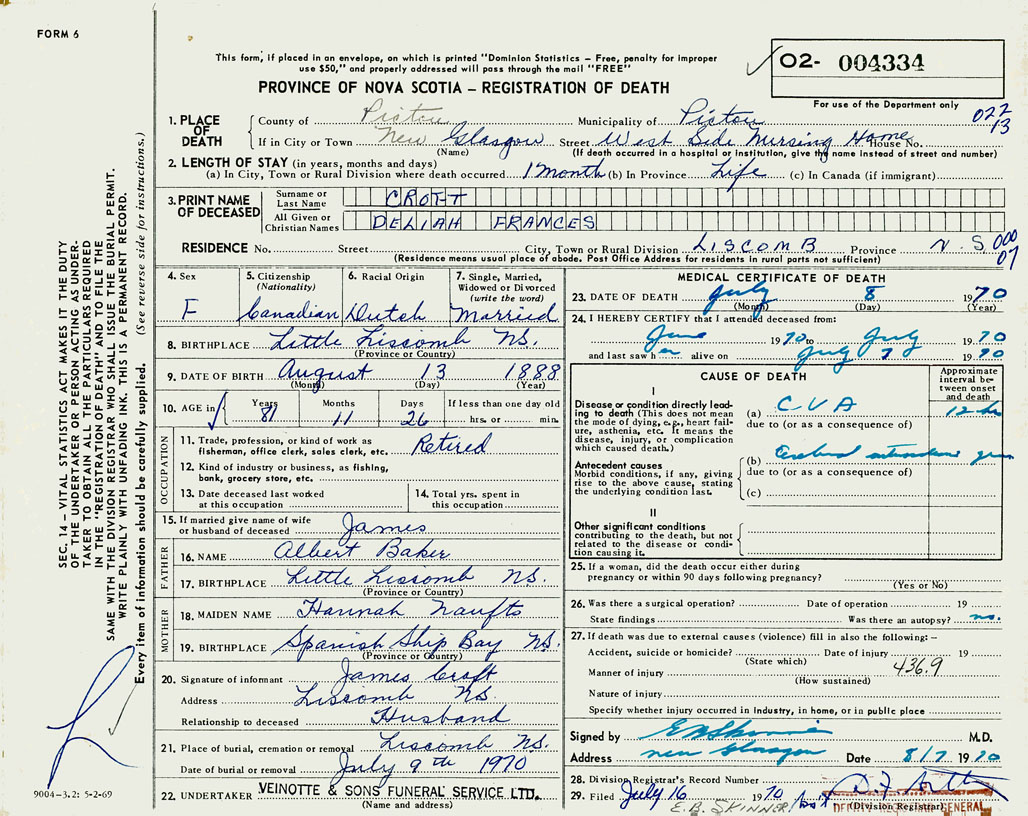 FORM 6
This form, if placed in an envelope, on which is printed "Dominion Statistics – Free, penalty for improper
use $50," and properly addressed will pass through the mail "FREE"
02- 004334
For use of the Department only
PROVINCE OF NOVA SCOTIA – REGISTRATION OF DEATH
022
13
1. PLACE OF DEATH
County of Pictou Municipality of Pictou
If in City or Town New Glasgow Street West Side Nursing Home House No.
(Name) (If death occurred in a hospital or institution, give the name instead of street and number)
2. LENGTH OF STAY (in years, months and days)
(a) In City, Town or Rural Division where death occurred 1 month (b) In Province Life (c) In Canada (if immigrant)
3. PRINT NAME OF DECEASED
Surname or Last Name CROFT
All Given or Christian Names DELIAH FRANCES
RESIDENCE No. Street City, Town or Rural Division LISCOMB Province N.S. 000
07
(Residence means usual place of abode. Post Office Address for residents in rural parts not sufficient)
4. Sex
F
5. Citizenship
(Nationality)
Canadian
6. Racial Origin
Dutch
7. Single, Married,
Widowed or Divorced
(write the word)
Married
8. BIRTHPLACE Little Liscomb NS.
(Province or Country)
9. DATE OF BIRTH August 13 1888
(Month) (Day) (Year)
10. AGE in Years Months Days If less than one day old
81 11 26 hrs. or min.
OCCUPATION
11. Trade, profession, or kind of work as
fisherman, office clerk, sales clerk, etc. Retired
12. Kind of industry or business, as fishing,
bank, grocery store, etc.
13. Date deceased last worked
at this occupation
14. Total yrs. spent in
this occupation
15. If married give name of wife
or husband of deceased James
FATHER
16. NAME Albert Baker
17. BIRTHPLACE Little Liscomb NS.
(Province or Country)
MOTHER
18. MAIDEN NAME Hannah Naufts
19. BIRTHPLACE Spanish Ship Bay NS.
(Province or Country)
20. Signature of informant James Croft
Address Liscomb NS.
Relationship to deceased Husband
21. Place of burial, cremation or removal Liscomb NS.
Date of burial or removal July 9th 1970
22. UNDERTAKER VEINOTTE & SONS FUNERAL SERVICE LTD.
(Name and address)
MEDICAL CERTIFICATE OF DEATH
23. DATE OF DEATH July 8 1970
(Month) (Day) (Year)
24. I HEREBY CERTIFY that I attended deceased from:
June 1970 to July 1970
and last saw her alive on July 7 1970
CAUSE OF DEATH
Approximate
interval between onset
and death
I
Disease or condition directly leading to death (This does not mean
the mode of dying, e.g., heart failure, asthenia, etc. It means the
disease, injury, or complication
which caused death.)
(a) C V A 12 hr
due to (or as a consequence of)
Antecedent causes
Morbid conditions, if any, giving
rise to the above cause, stating
the underlying condition last.
(b) Cerebral
due to (or as a consequence of)
(c)
II
Other significant conditions
contributing to the death, but not
related to the disease or condition causing it.
25. If a woman, did the death occur either during
pregnancy or within 90 days following pregnancy?
(Yes or No)
26. Was there a surgical operation? Date of operation 19
State findings Was there an autopsy? no.
27. If death was due to external causes (violence) fill in also the following:–
Accident, suicide or homicide? Date of injury 19
(State which)
436.9
Manner of injury
(How sustained)
Nature of injury
Specify whether injury occurred in industry, in home, or in public place
Signed by M.D.
Address New Glasgow Date 8/7 1970
28. Division Registrar's Record Number
29. Filed July 16 1970
(Division Registrar)
E.B. SKINNER
DEPUTY REGISTRAR GENERAL
SEC. 14 – VITAL STATISTICS ACT MAKES IT THE DUTY
OF THE UNDERTAKER OR PERSON ACTING AS UNDERTAKER TO OBTAIN ALL THE PARTICULARS REQUIRED
IN THE "REGISTRATION OF DEATH" AND TO FILE THE
SAME WITH THE DIVISION REGISTRAR WHO SHALL ISSUE THE BURIAL PERMIT.
WRITE PLAINLY WITH UNFADING INK. THIS IS A PERMANENT RECORD.
Every item of information should be carefully supplied. (See reverse side for instructions.)
9004-3.2: 5-2-69